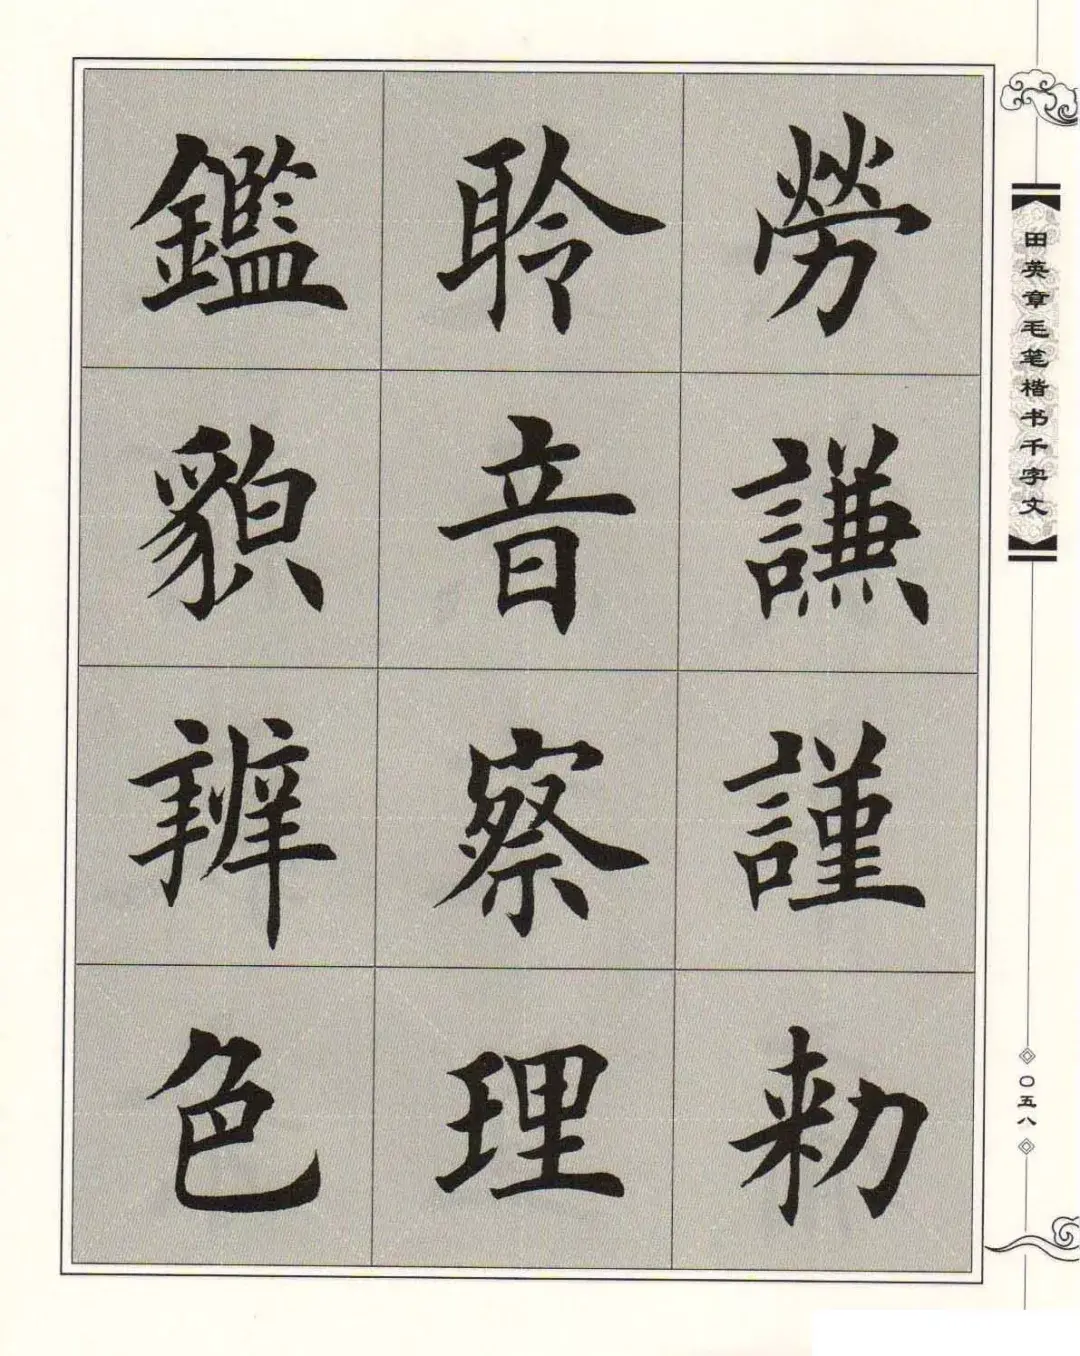 勞謙謹勑
聆音察理
鑑貌辨色
田英章毛笔楷书千字文
〇五八